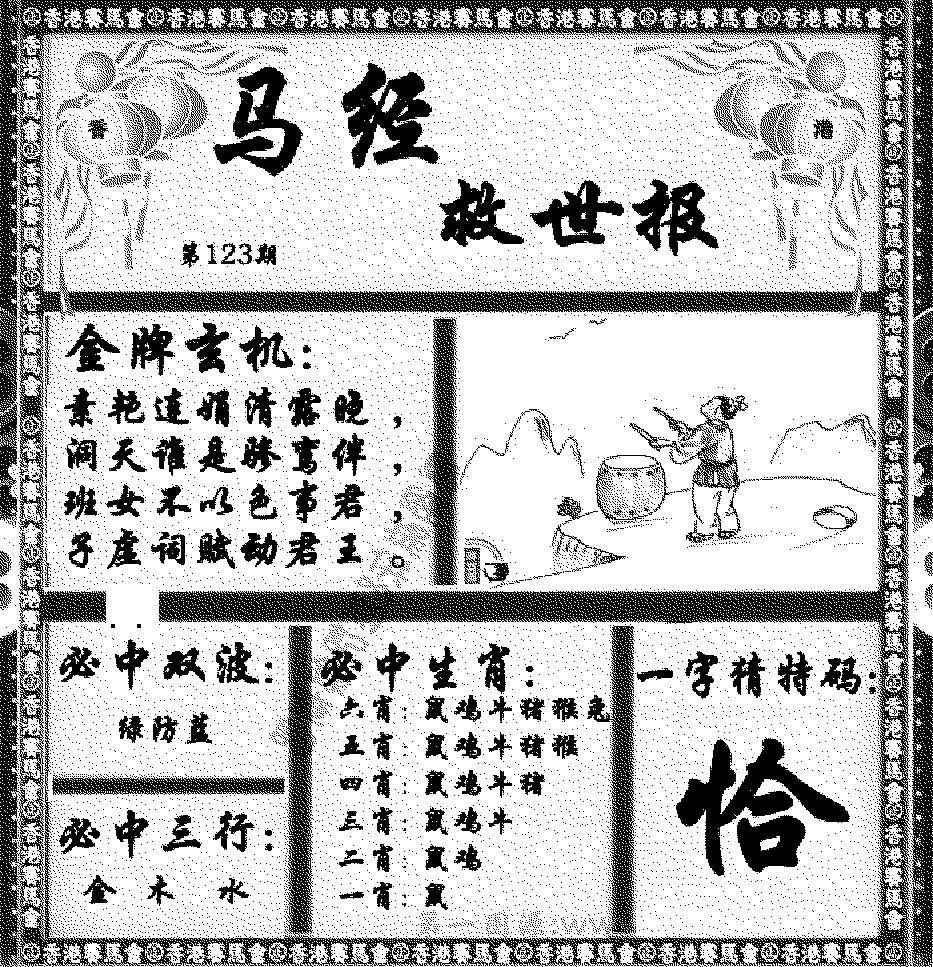 香港賽馬會香港賽馬會香港賽馬會香港賽馬會香港賽馬會香港賽馬會香港賽馬會
香
港
马经
救世报
第123期
金牌玄机:
素艳连娟清露晚,
洞天谁是骖鸾伴,
班女不以色事君,
子虚词赋动君王。
必中双波:
绿防蓝
必中三行:
金 木 水
必中生肖:
六肖: 鼠鸡牛猪猴兔
五肖: 鼠鸡牛猪猴
四肖: 鼠鸡牛猪
三肖: 鼠鸡牛
二肖: 鼠鸡
一肖: 鼠
一字猜特码:
恰
香港賽馬會香港賽馬會香港賽馬會香港賽馬會香港賽馬會香港賽馬會香港賽馬會